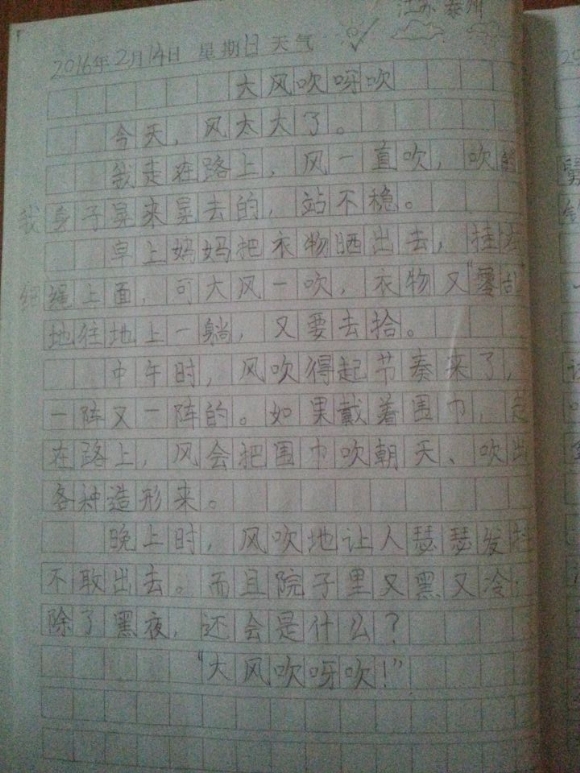 江苏泰州
2016年2月14日 星期日 天气
大风吹呀吹
今天，风太大了。
我走在路上，风一直吹，吹的
我身子晃来晃去的，站不稳。
早上妈妈把衣物晒出去，挂在
绳上面，可大风一吹，衣物又“零乱”
地往地上一躺，又要去拾。
中午时，风吹得起节奏来了，
一阵又一阵的。如果戴着围巾，走
在路上，风会把围巾吹朝天、吹出
各种造形来。
晚上时，风吹地让人瑟瑟发抖
不敢出去。而且院子里又黑又冷，
除了黑夜，还会是什么？
“大风吹呀吹！”